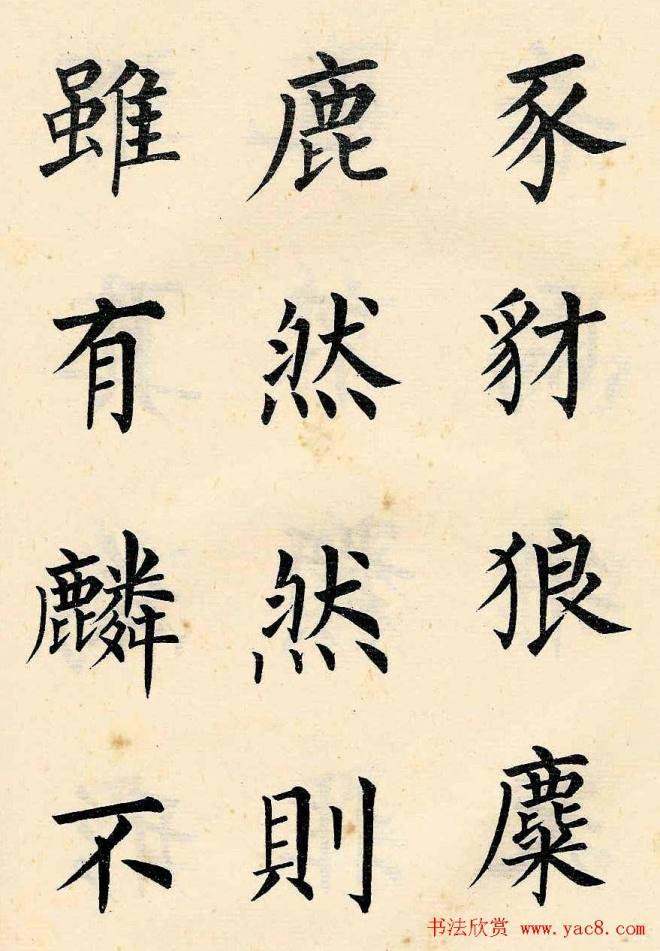 豕豺狼麋
鹿然然則
雖有麟不
书法欣赏 www.yac8.com